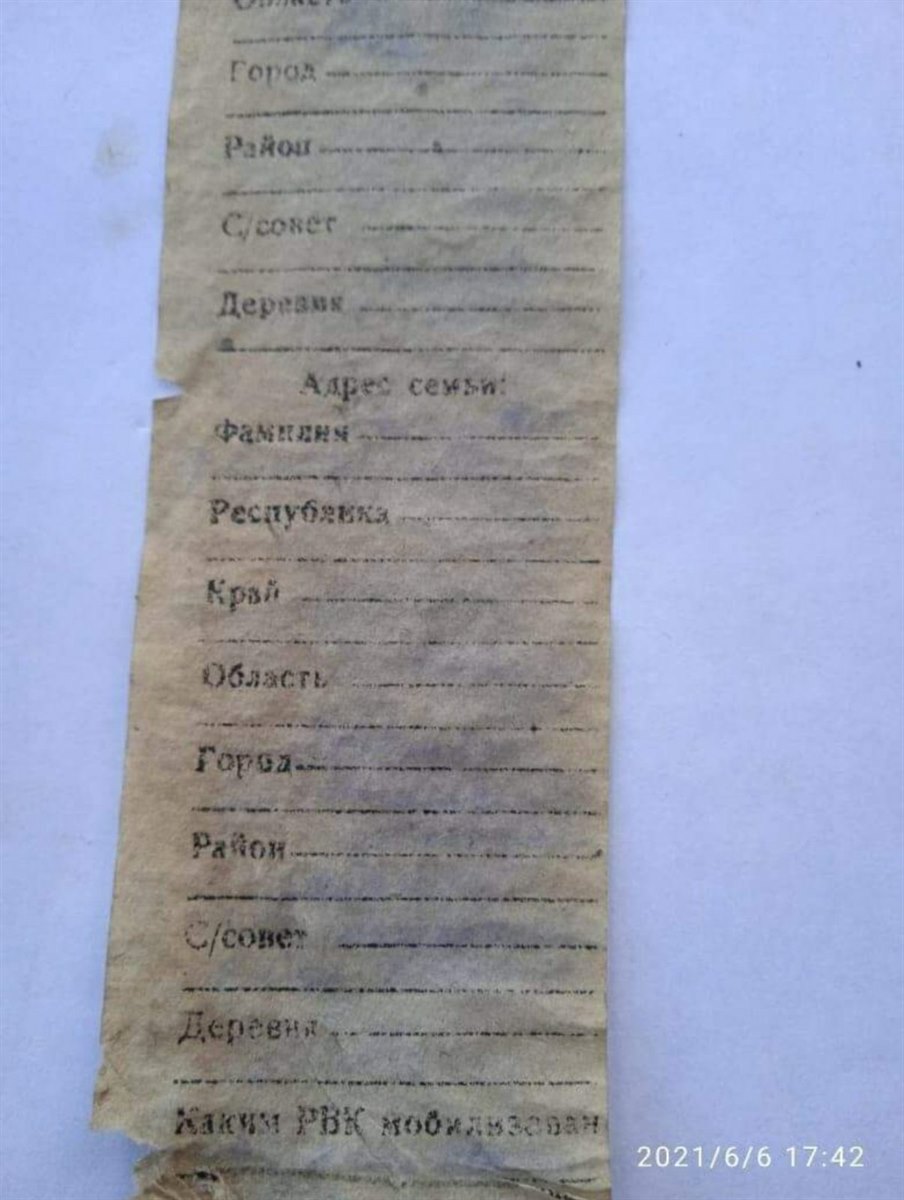 Область
Город
Район
С/совет
Деревня
Адрес семьи:
Фамилия
Республика
Край
Область
Город
Район
С/совет
Деревня
Каким РВК мобилизован
2021/6/6 17:42